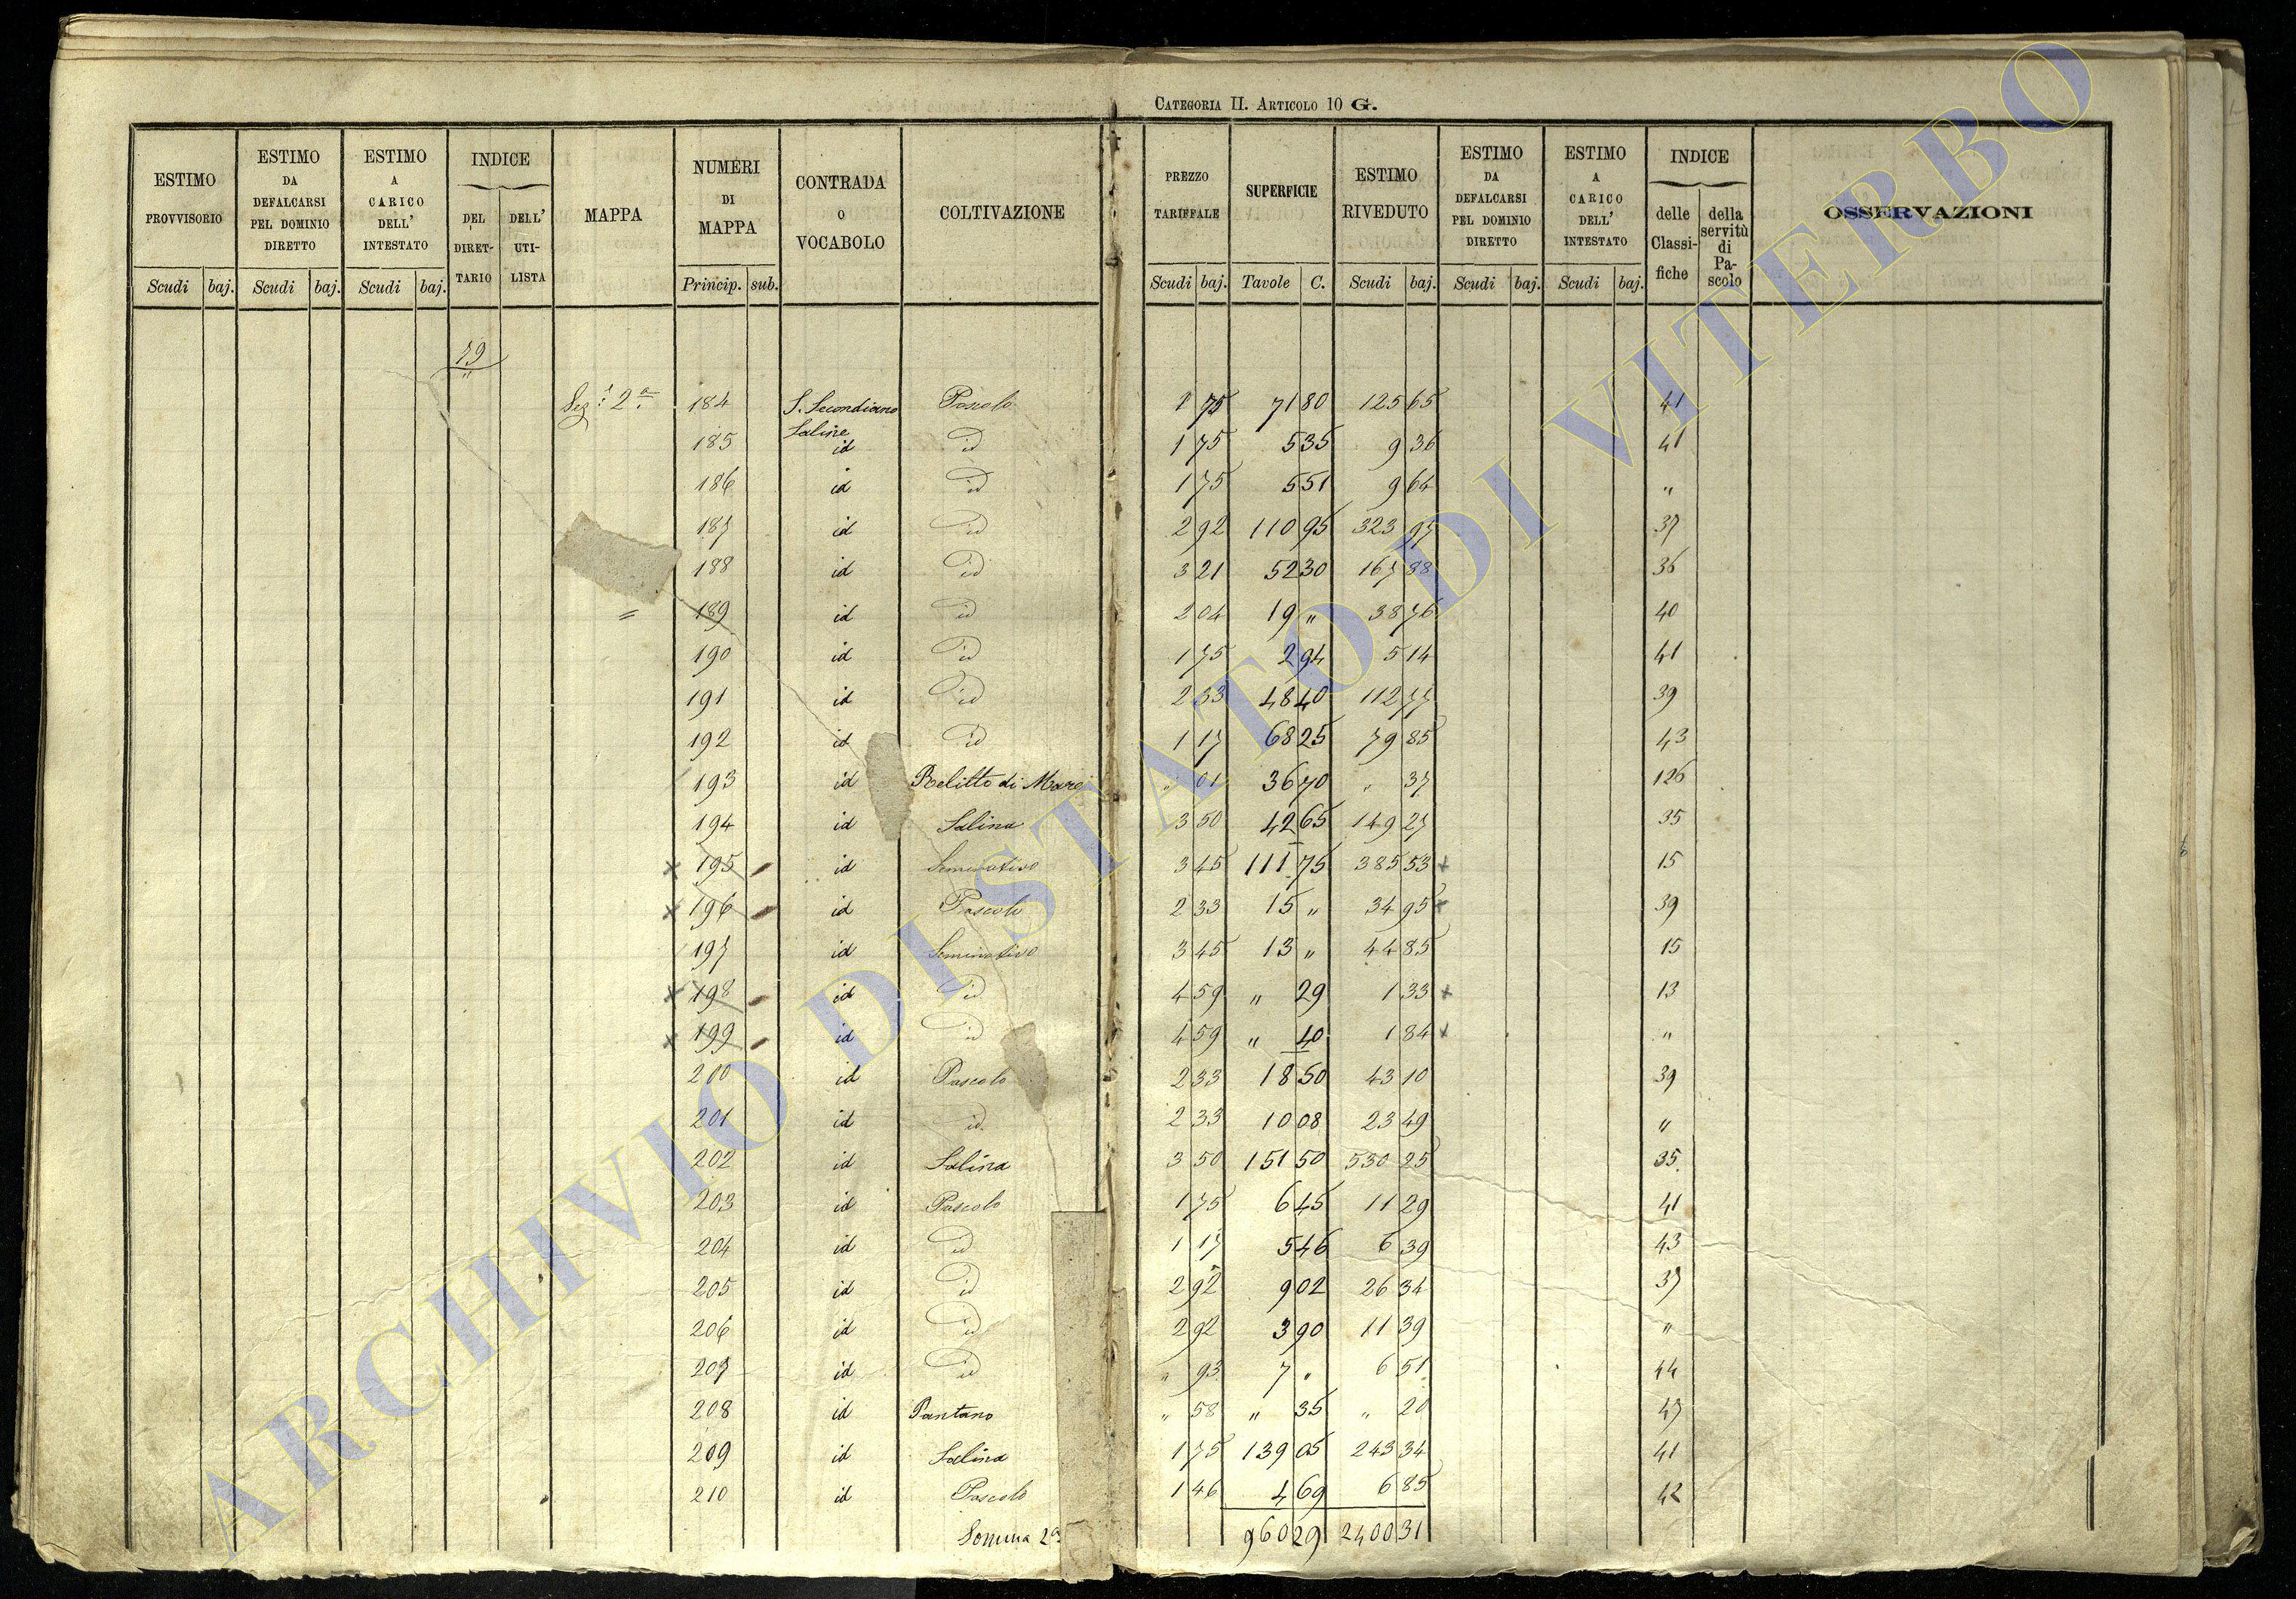 CATEGORIA II. ARTICOLO 10 G.
ESTIMO PROVVISORIO | ESTIMO DA DEFALCARSI PEL DOMINIO DIRETTO | ESTIMO A CARICO DELL' INTESTATO | INDICE DEL DIRETTARIO | DELL' UTILISTA | MAPPA | NUMERI DI MAPPA | CONTRADA O VOCABOLO | COLTIVAZIONE | PREZZO TARIFFALE | SUPERFICIE | ESTIMO RIVEDUTO | ESTIMO DA DEFALCARSI PEL DOMINIO DIRETTO | ESTIMO A CARICO DELL' INTESTATO | INDICE delle Classifiche | della servitù di Pascolo | OSSERVAZIONI
Scudi | baj. | Scudi | baj. | Scudi | baj. | Princip. | sub. | Scudi | baj. | Tavole | C. | Scudi | baj. | Scudi | baj. | Scudi | baj.
79
Sez: 2a 184 S. Secondiano Saline Pascolo 1 75 71 80 125 65 41
185 id id 1 75 5 35 9 36 41
186 id id 1 75 5 51 9 64 "
187 id id 2 92 110 95 323 97 37
188 id id 3 21 52 30 167 88 36
= 189 id id 2 04 19 " 38 76 40
190 id id 1 75 2 94 5 14 41
191 id id 2 33 48 40 112 77 39
192 id id 1 17 68 25 79 85 43
193 id Relitto di Mare " 01 36 70 " 37 126
194 id Salina 3 50 42 65 149 27 35
x 195 id Seminativo 3 45 111 75 385 53 x 15
x 196 id Pascolo 2 33 15 " 34 95 x 39
197 id Seminativo 3 45 13 " 44 85 15
x 198 id id 4 59 " 29 1 33 x 13
x 199 id id 4 59 " 40 1 84 x "
200 id Pascolo 2 33 18 50 43 10 39
201 id id 2 33 10 08 23 49 "
202 id Salina 3 50 151 50 530 25 35
203 id Pascolo 1 75 6 45 11 29 41
204 id id 1 17 5 46 6 39 43
205 id id 2 92 9 02 26 34 37
206 id id 2 92 3 90 11 39 "
207 id id " 93 7 " 6 51 44
208 id Pantano " 58 " 35 " 20 47
209 id Salina 1 75 139 05 243 34 41
210 id Pascolo 1 46 4 69 6 85 42
Somma 2a 960 29 2400 31
ARCHIVIO DI STATO DI VITERBO